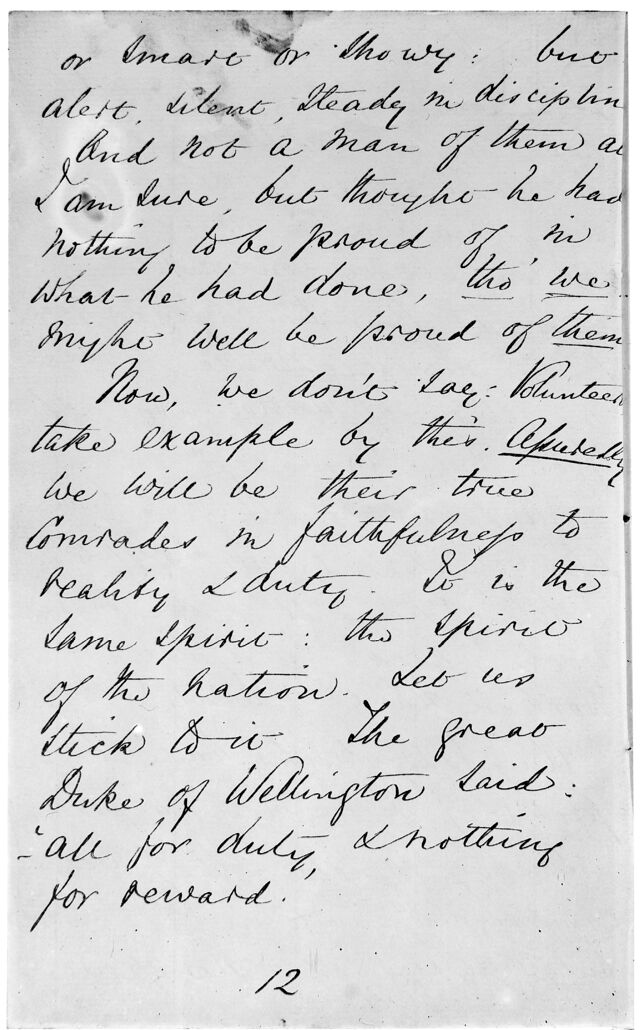 or smart or showy: but
alert, silent, steady in disciplin
And not a man of them al
I am sure, but thought he had
nothing to be proud of, in
what he had done, tho' we
might well be proud of them
Now, we don't say: Volunteers
take example by this. Assuredly
we will be their true
Comrades in faithfulness to
reality & duty. It is the
same spirit: the spirit
of the nation. Let us
stick to it The great
Duke of Wellington said:
"all for duty, & nothing
for reward.
12